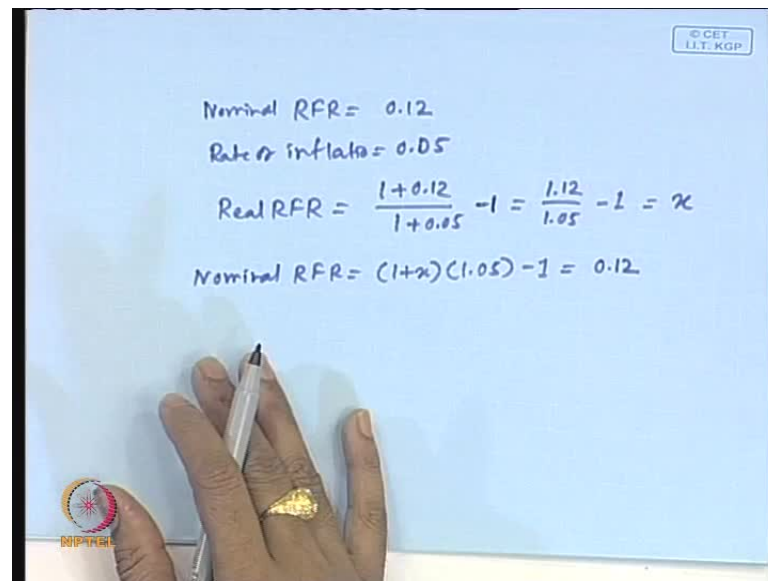 © CET
I.I.T. KGP
Nominal RFR = 0.12
Rate of inflatio = 0.05
Real RFR = \frac{1+0.12}{1+0.05} -1 = \frac{1.12}{1.05} - 1 = x
Nominal RFR = (1+x)(1.05) - 1 = 0.12
NPTEL